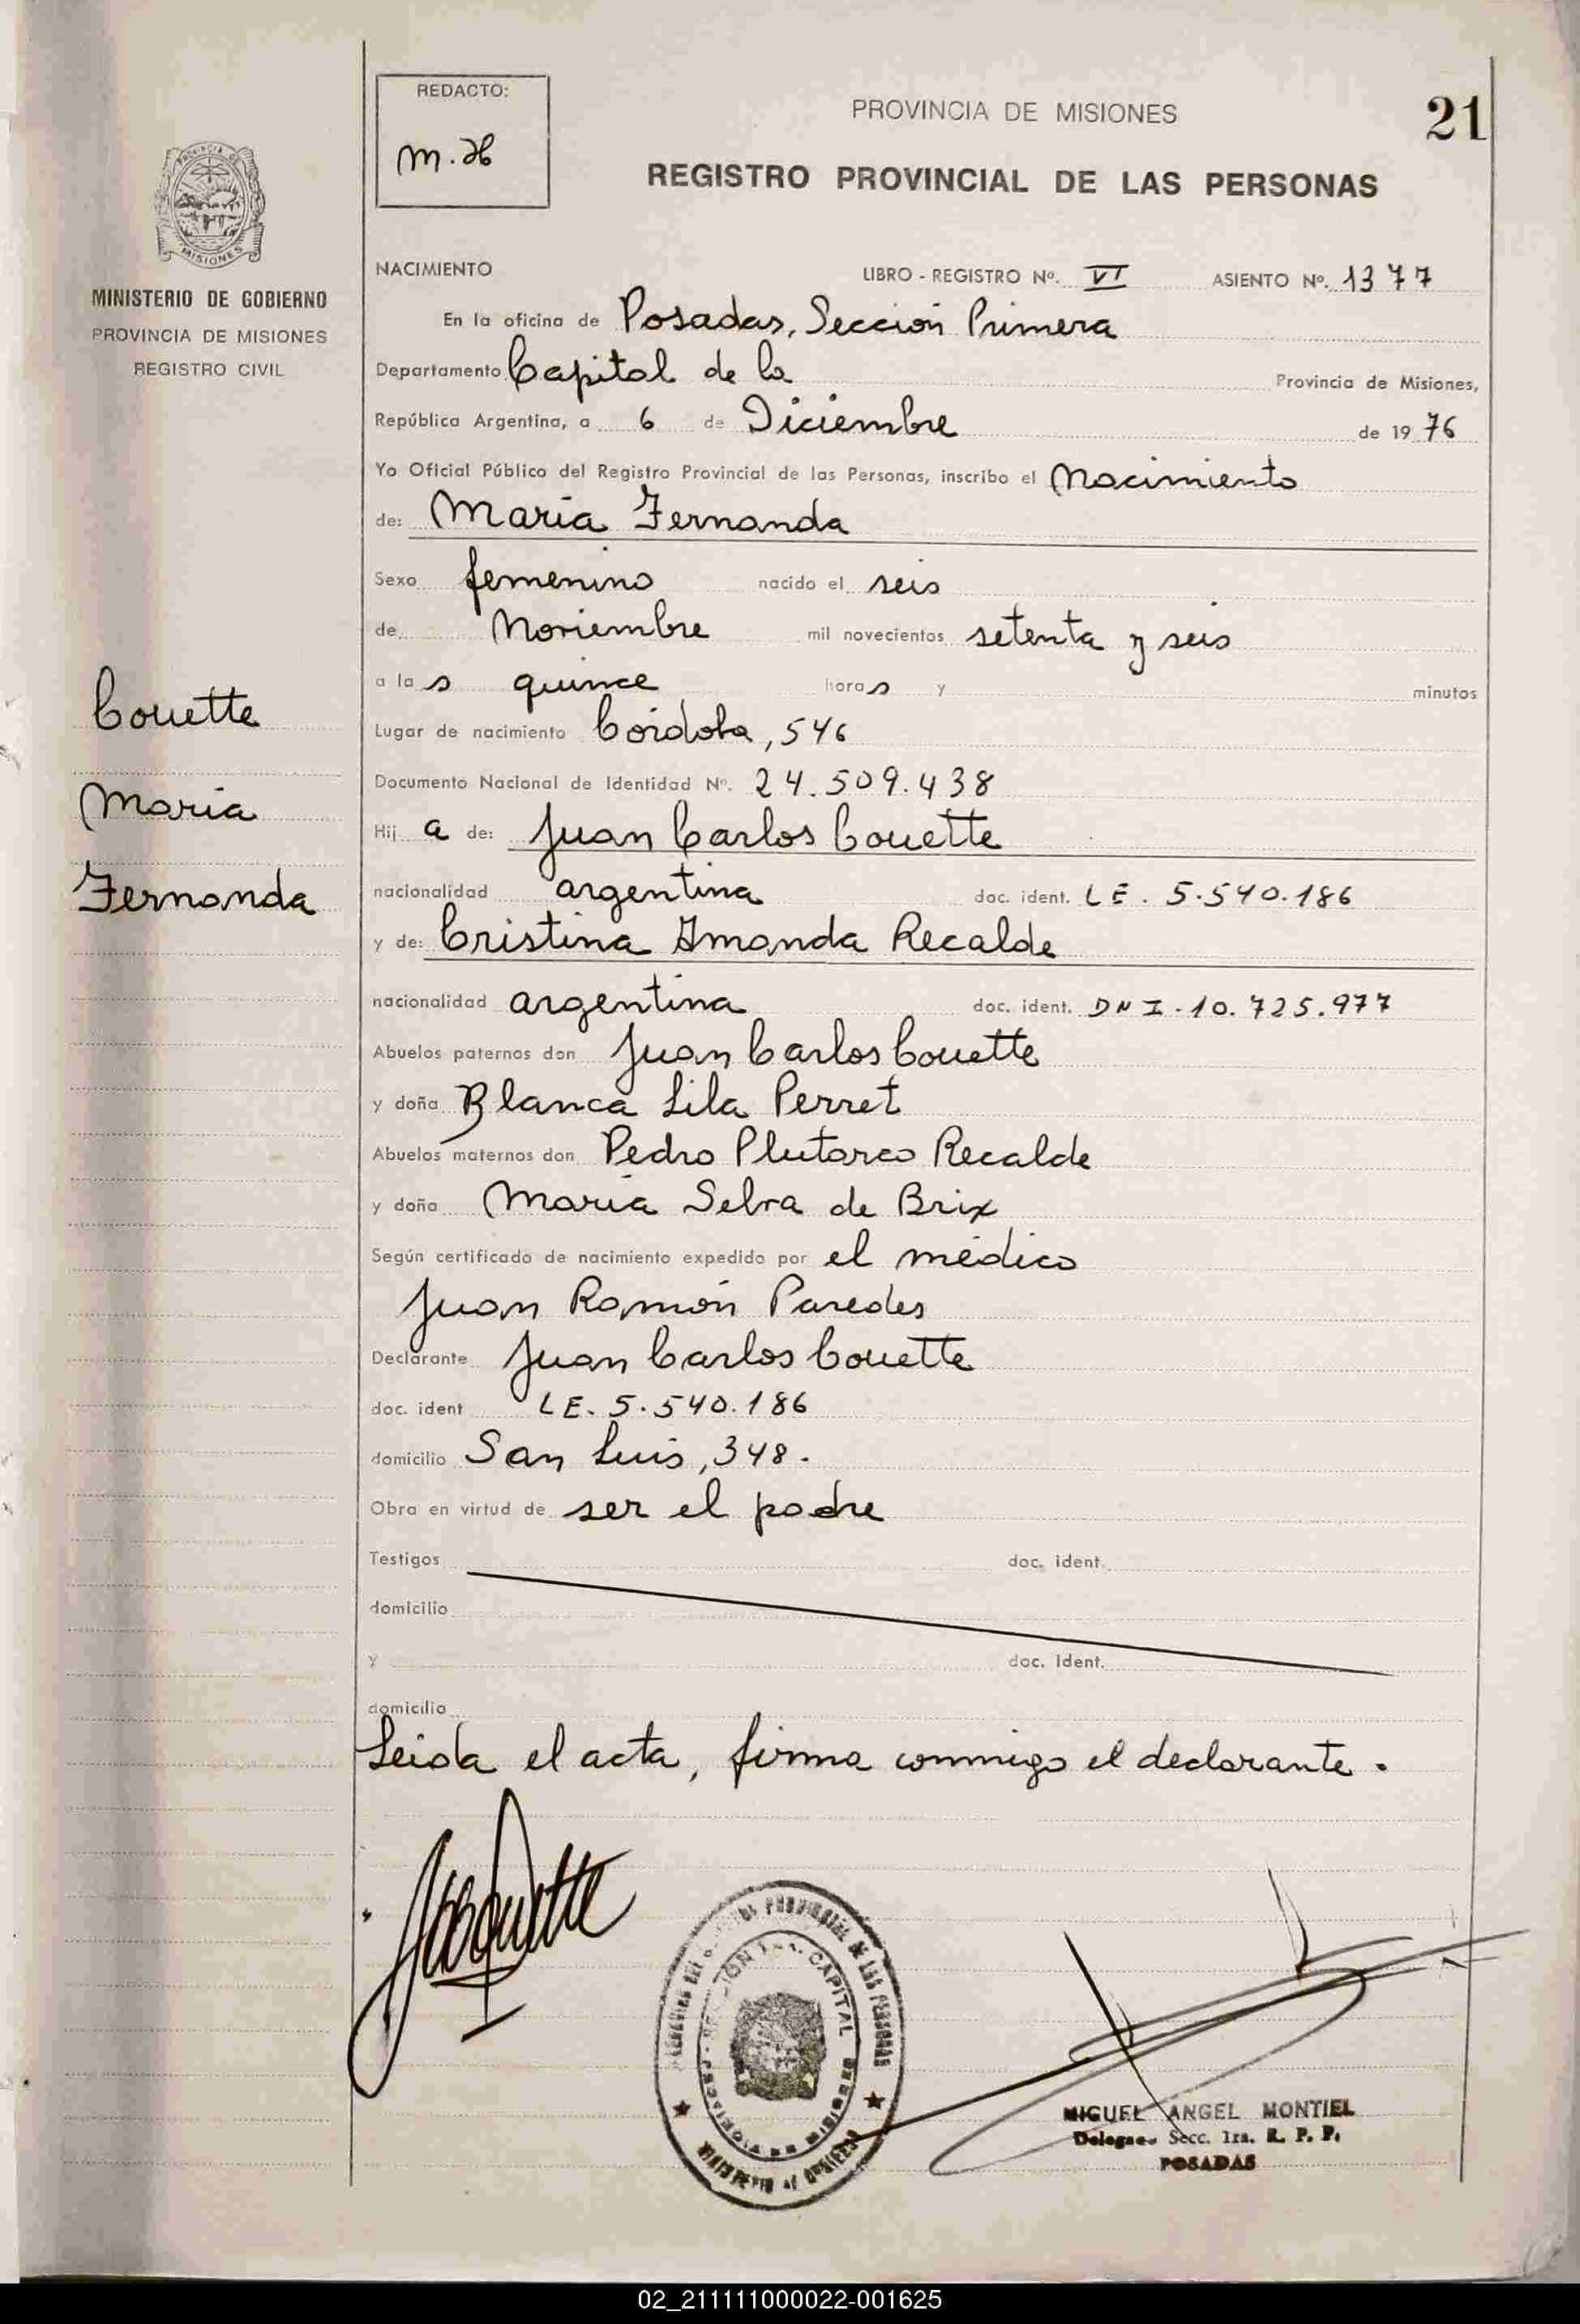 REDACTO:
M. H
PROVINCIA DE MISIONES
21
REGISTRO PROVINCIAL DE LAS PERSONAS
PROVINCIA DE
MISIONES
MINISTERIO DE GOBIERNO
PROVINCIA DE MISIONES
REGISTRO CIVIL
Couette
Maria
Fernanda
NACIMIENTO LIBRO - REGISTRO Nº. VI ASIENTO Nº. 1377
En la oficina de Posadas, Sección Primera
Departamento Capital de la Provincia de Misiones,
República Argentina, a 6 de Diciembre de 19 76
Yo Oficial Público del Registro Provincial de las Personas, inscribo el Nacimiento
de: María Fernanda
Sexo femenino nacido el seis
de Noviembre mil novecientos setenta y seis
a las quince horas y minutos
Lugar de nacimiento Córdoba, 546
Documento Nacional de Identidad Nº. 24.509.438
Hija de: Juan Carlos Couette
nacionalidad argentina doc. ident. LE. 5.540.186
y de: Cristina Amanda Recalde
nacionalidad argentina doc. ident. DNI. 10.725.977
Abuelos paternos don Juan Carlos Couette
y doña Blanca Lila Perret
Abuelos maternos don Pedro Plutarco Recalde
y doña María Selva de Brix
Según certificado de nacimiento expedido por el médico
Juan Ramón Paredes
Declarante Juan Carlos Couette
doc. ident LE. 5.540.186
domicilio San Luis, 348.
Obra en virtud de ser el padre
Testigos doc. ident.
domicilio
y doc. ident.
domicilio
Leida el acta, firma conmigo el declarante.
PROVINCIAL DE LAS PERSONAS
CAPITAL
MIGUEL ANGEL MONTIEL
Secc. 1ra. R. P. P.
POSADAS
02_211111000022-001625